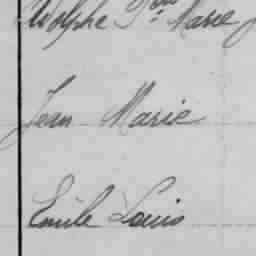 Adolphe Fçois Marie
Jean Marie
Emile Louis